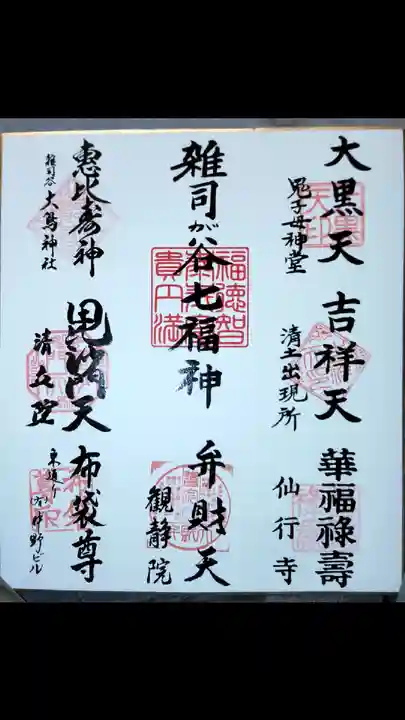 大黒天
鬼子母神堂
吉祥天
清土出現所
華福禄壽
仙行寺
雑司が谷七福神
福徳智
貴円満
弁財天
観静院
恵比寿神
雑司谷 大鳥神社
毘沙門天
清立院
布袋尊
東通り
(有)中野ビル